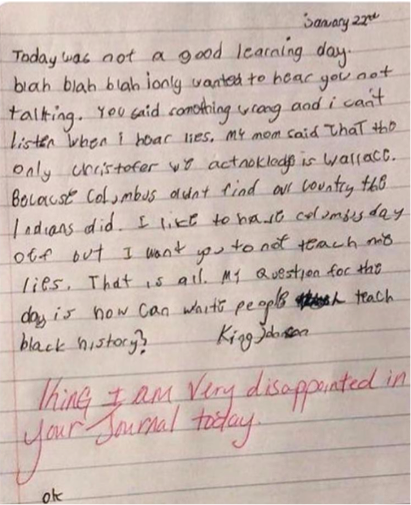 January 22nd
Today was not a good learning day.
blah blah blah i only wanted to hear you not
talking. You said something wrong and i can't
listen when i hear lies. My mom said That the
only christofer we acknoledge is wallace.
Because Columbus didnt find our country the
Indians did. I like to have columbus day
off but I want you to not teach me
lies. That is all. My question for the
day is how can white people teach
black history?
King Johnson
King I am very disappointed in
your Journal today.
ok